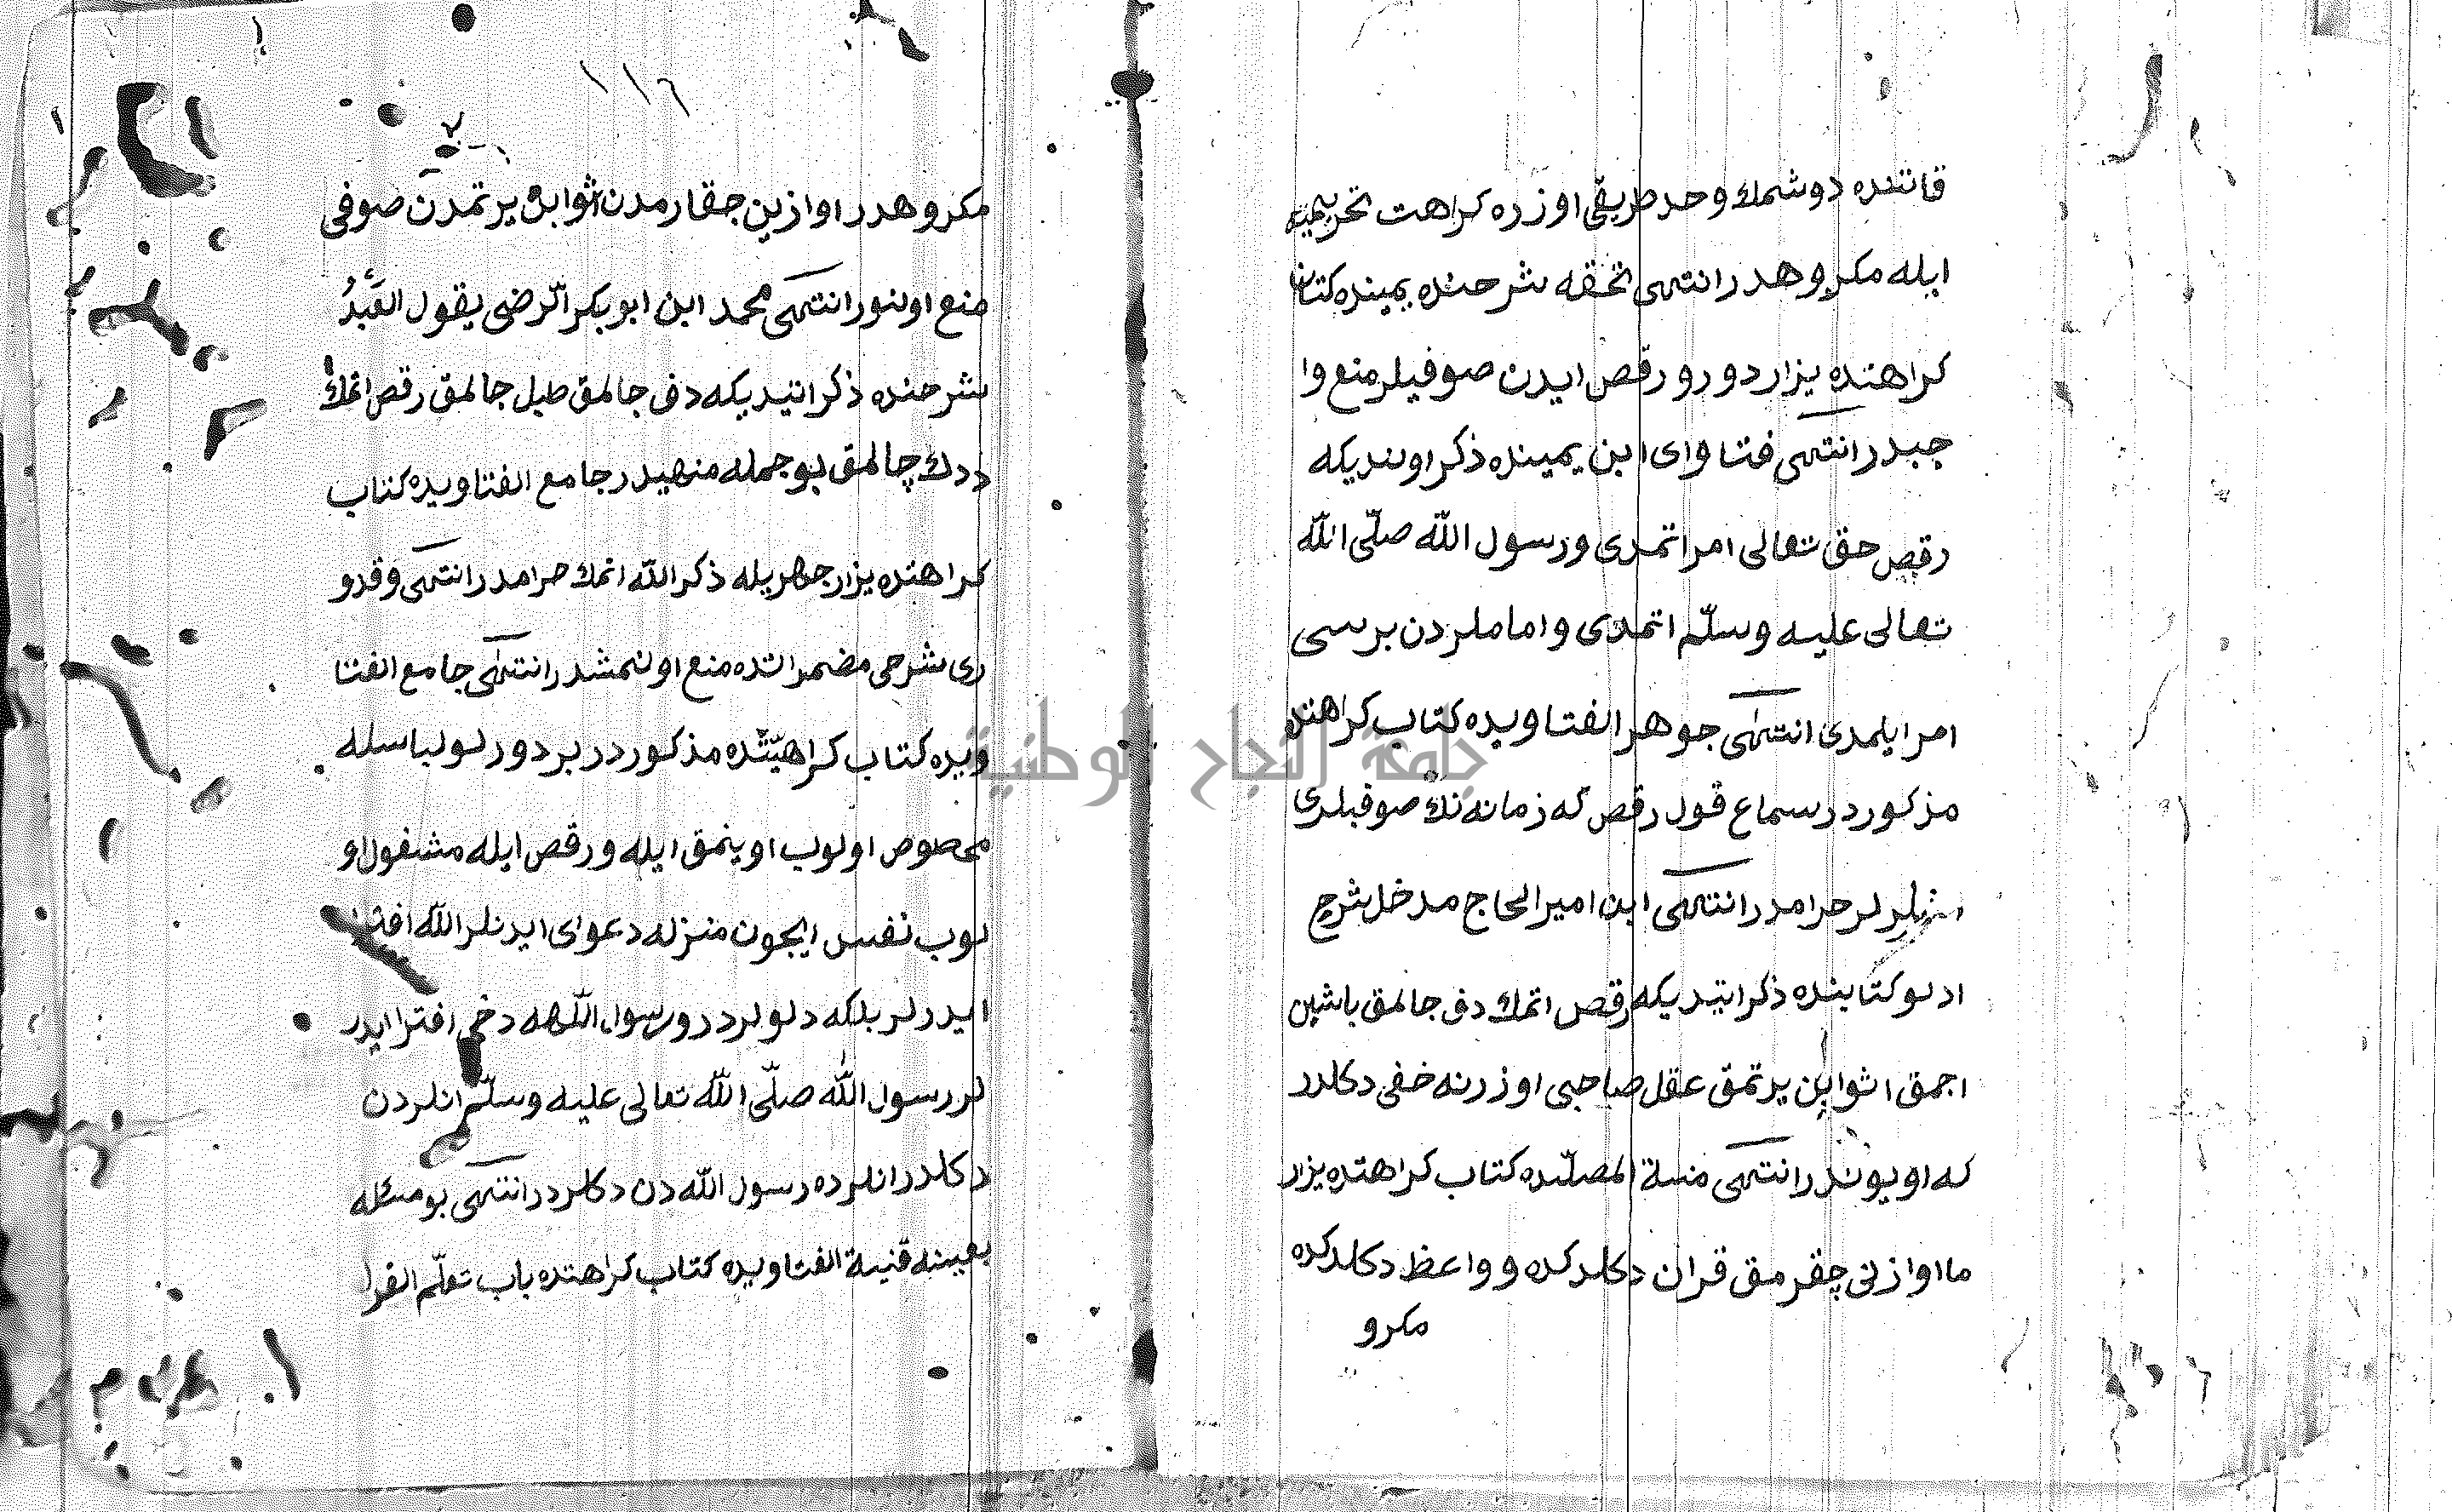 قاتنده دوشمك وحد طريقى اوزره كراهت تحريميه
ايله مكروهدر انتهى تحفه شرحنده يمينده كتاب
كراهتده يزار دورو رقص ايدن صوفيلر منع وا
جبدر انتهى فتاواى ابن يمينده ذكر اولنديكه
رقص حق تعالى امر اتمدى ورسول الله صلّى الله
تعالى عليه وسلّم اتمدى واماملردن برسى
امر ايلمدى انتهى جوهر الفتاويده كتاب كراهتده
مذكوردر سماع قول رقص كه زمانه نك صوفيلرى
اشلرلر حرامدر انتهى ابن امير الحاج مدخل شرح
ادلو كتابنده ذكر ايتديكه رقص اتمك دف جالمق باشين
اجمق اثوابن يرتمق عقل صاحبى اوزرنه خفى دكلدر
كه اويوندر انتهى منية المصلّيده كتاب كراهتده يزار
ما اوازنى چقرمق قران دكلدكده وواعظ دكلدكده
مكرو
١١٦
مكروهدر اوازين جقارمدن اثوابن يرتمدن صوفى
منع اولنور انتهى محمد ابن ابو بكر الرضى يقول العبد
شرحنده ذكر اتيديكه دف جالمق طبل جالمق رقص اتمك
ددك چالمق بو جمله منهيدر جامع الفتاويده كتاب
كراهتده يزار جهريله ذكر الله اتمك حرامدر انتهى وقدو
رى شرحى مضمراتده منع اولنمشدر انتهى جامع الفتا
ويده كتاب كراهيتده مذكوردر بر دورلو لباسله
مخصوص اولوب اوينمق ايله ورقص ايله مشغول او
لوب نفس ايچون منزله دعواى ايدنلر الله افترا
ايدرلر بلكه دلولردر ورسول اللهه دخى افترا ايدر
لر رسول الله صلّى الله تعالى عليه وسلّم انلردن
دكلدر انلرده رسول الله دن دكلردر انتهى بو مسئله
بعينه قنية الفتاويده كتاب كراهتده باب تعلّم القرا
جامعة النجاح الوطنية